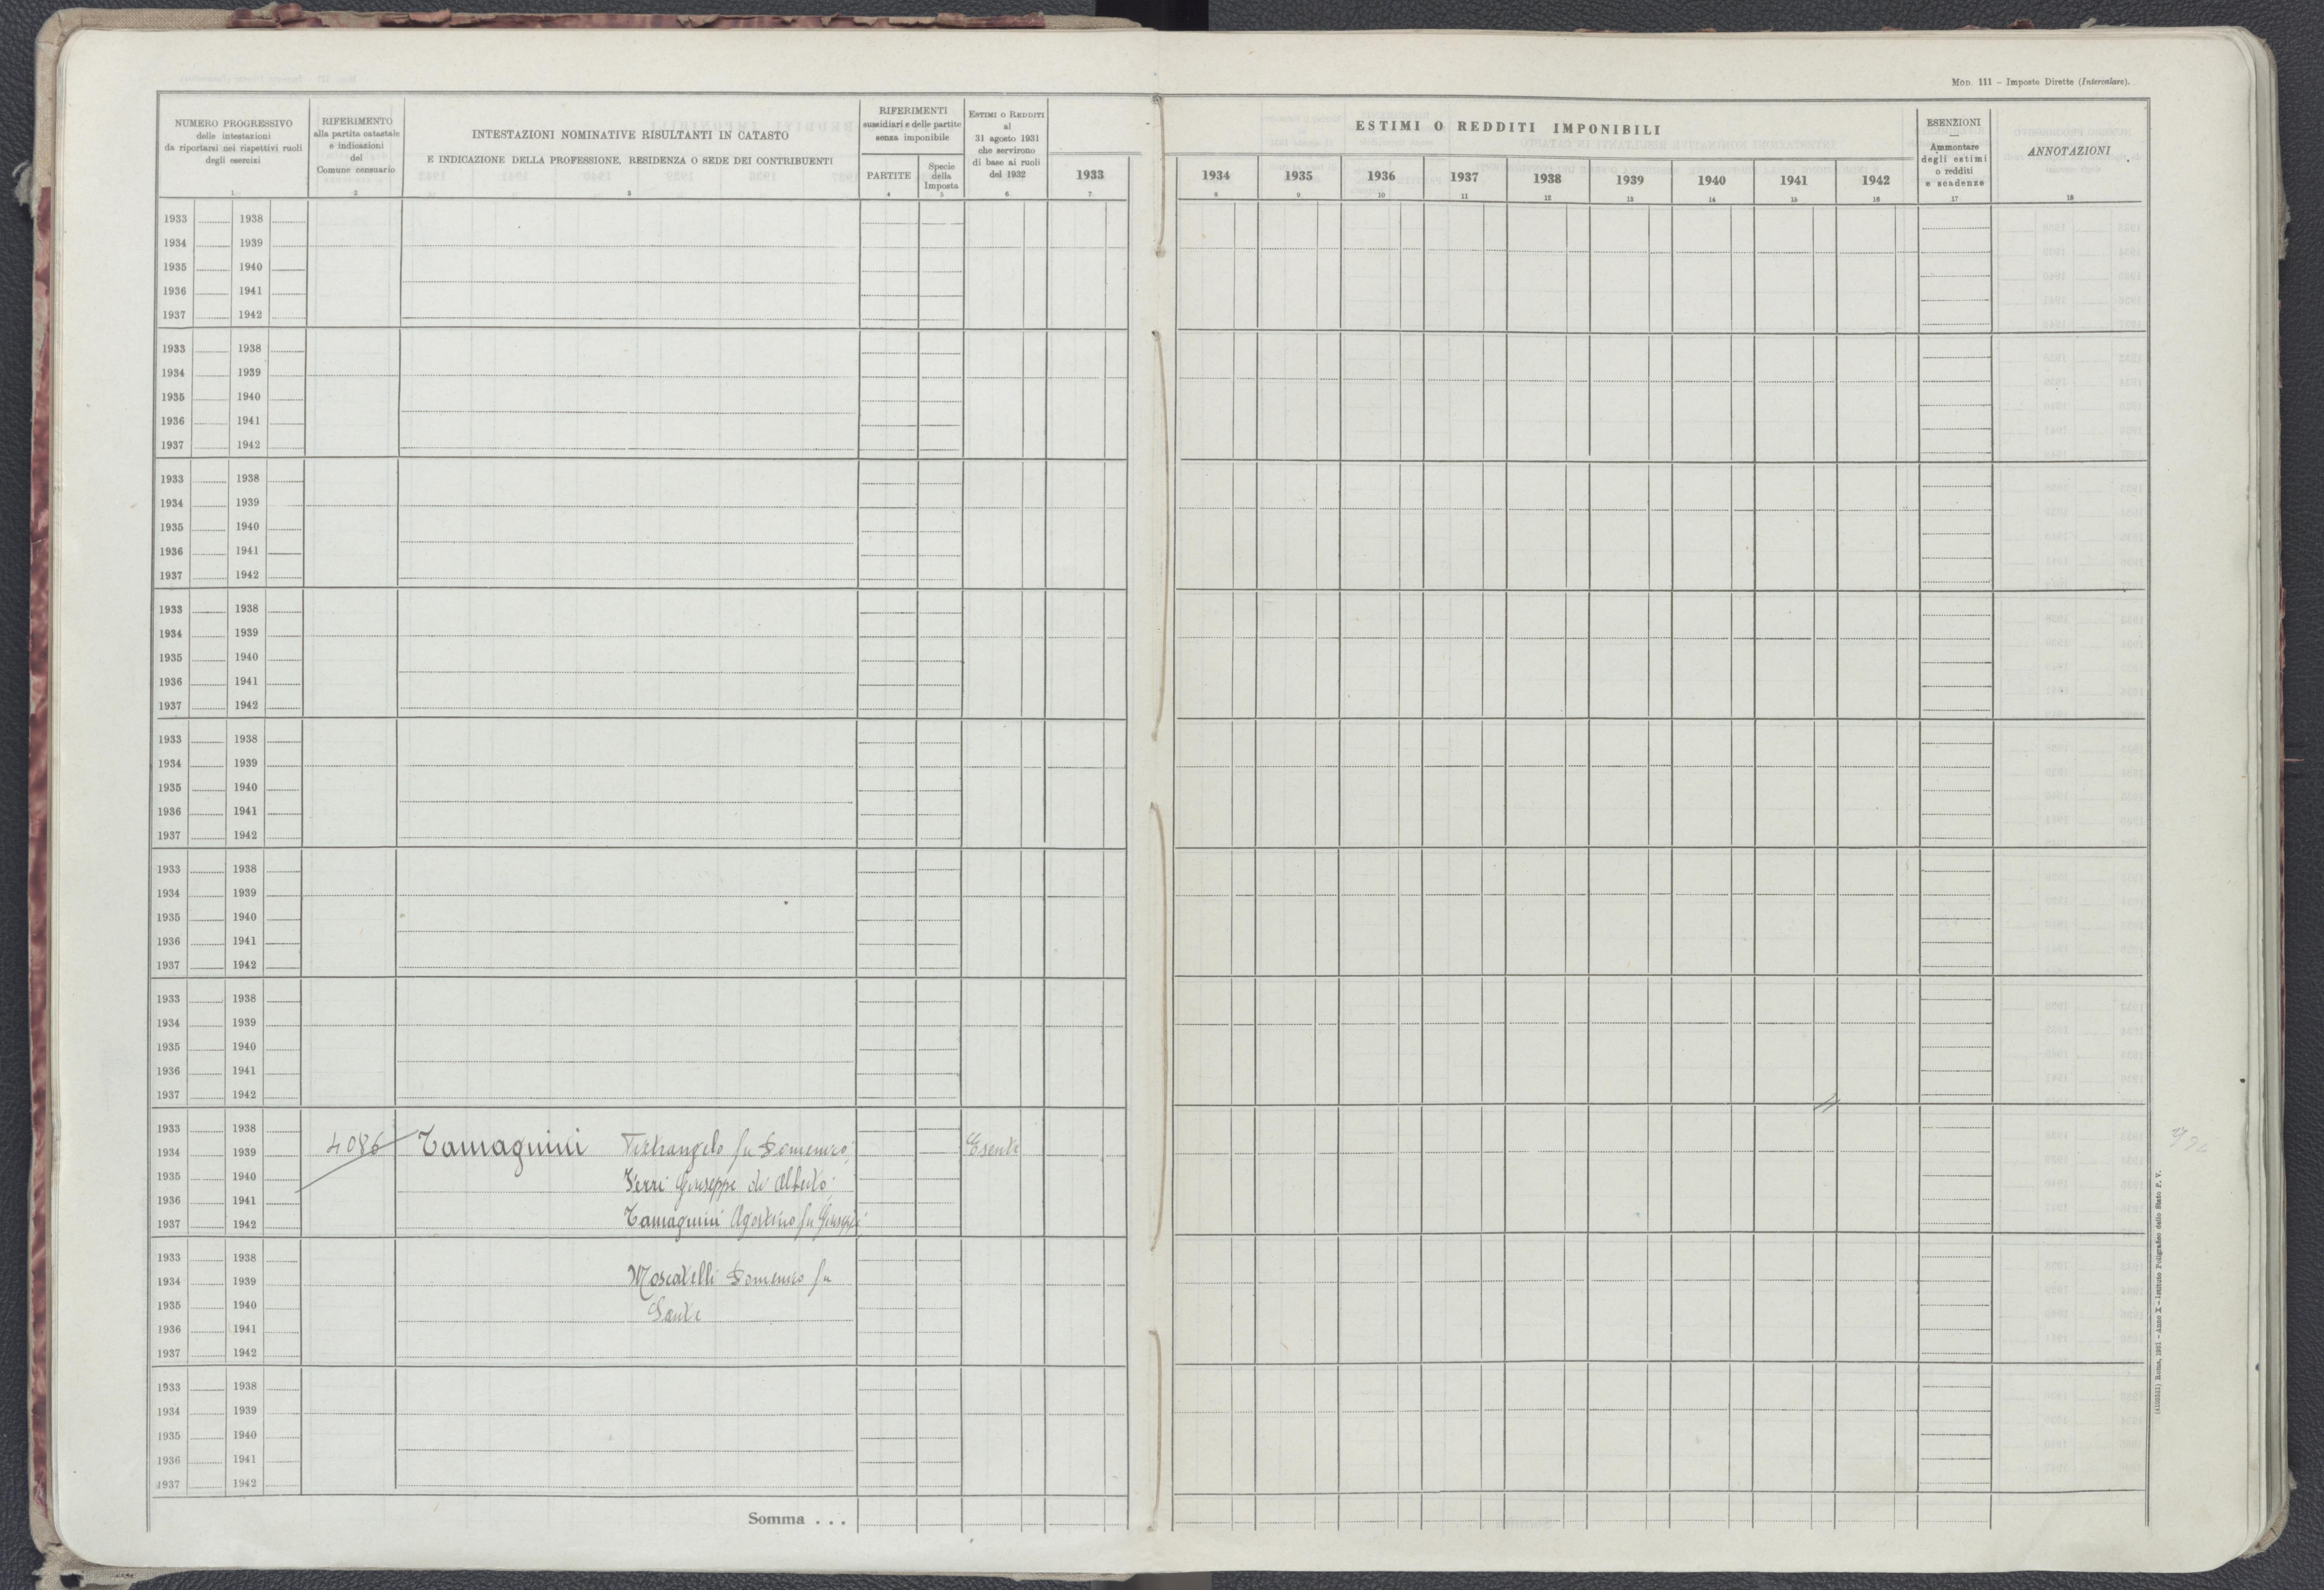 Mod. 111 – Imposte Dirette (Intercalare).
NUMERO PROGRESSIVO
delle intestazioni
da riportarsi nei rispettivi ruoli
degli esercizi
1
RIFERIMENTO
alla partita catastale
e indicazioni
del
Comune censuario
2
INTESTAZIONI NOMINATIVE RISULTANTI IN CATASTO
E INDICAZIONE DELLA PROFESSIONE, RESIDENZA O SEDE DEI CONTRIBUENTI
3
RIFERIMENTI
sussidiari e delle partite
senza imponibile
PARTITE
4
Specie
della
Imposta
5
ESTIMI O REDDITI
al
31 agosto 1931
che servirono
di base ai ruoli
del 1932
6
ESTIMI O REDDITI IMPONIBILI
1933 1934 1935 1936 1937 1938 1939 1940 1941 1942
7 8 9 10 11 12 13 14 15 16
ESENZIONI
—
Ammontare
degli estimi
o redditi
e scadenze
17
ANNOTAZIONI
18
1933 1938
1934 1939
1935 1940
1936 1941
1937 1942
1933 1938
1934 1939
1935 1940
1936 1941
1937 1942
1933 1938
1934 1939
1935 1940
1936 1941
1937 1942
1933 1938
1934 1939
1935 1940
1936 1941
1937 1942
1933 1938
1934 1939
1935 1940
1936 1941
1937 1942
1933 1938
1934 1939
1935 1940
1936 1941
1937 1942
1933 1938
1934 1939
1935 1940
1936 1941
1937 1942
1933 1938
1934 1939 4086 Tamagnini Pietrangelo fu Domenico; Esente
1935 1940 Verri Giuseppe di Alberto;
1936 1941
1937 1942 Tamagnini Agostino fu Giuseppe
1933 1938
1934 1939 Moscatelli Domenico fu
1935 1940 Sante
1936 1941
1937 1942
1933 1938
1934 1939
1935 1940
1936 1941
1937 1942
Somma . . .
(4103521) Roma, 1931 – Anno X – Istituto Poligrafico dello Stato P. V.